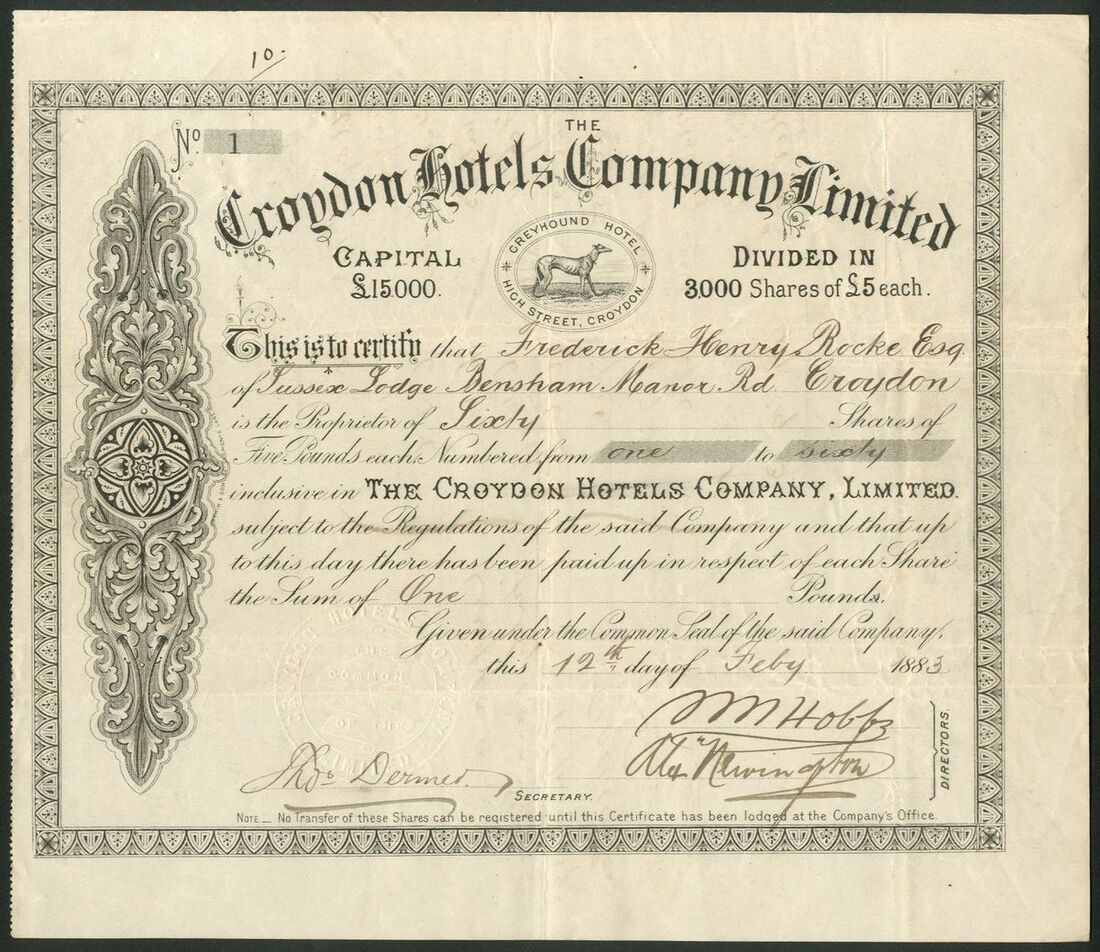 10-
No. 1
THE
Croydon Hotels Company Limited
CAPITAL
£15.000.
GREYHOUND HOTEL
HIGH STREET, CROYDON
DIVIDED IN
3,000 Shares of £5 each.
This is to certify that Frederick Henry Rocke Esq.
of Sussex Lodge Bensham Manor Rd Croydon
is the Proprietor of Sixty Shares of
Five Pounds each, Numbered from one to sixty
inclusive in THE CROYDON HOTELS COMPANY, LIMITED.
subject to the Regulations of the said Company and that up
to this day there has been paid up in respect of each Share
the Sum of One Pounds.
Given under the Common Seal of the said Company,
this 12th day of Feby 1883.
THE
COMMON
OF THE
LIMITED
W M Hobbs
Alex Newington
DIRECTORS.
Thos Dermed
SECRETARY.
NOTE_ No Transfer of these Shares can be registered until this Certificate has been lodged at the Company's Office.